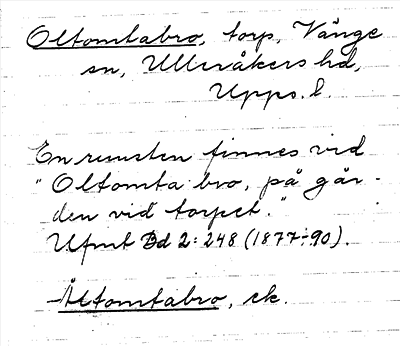 Oltomtabro, torp, Vänge
sn, Ulleråkers hd,
Upps. l.
En runsten finnes vid
"Oltomta bro, på går-
den vid torpet."
Ufmt Bd 2: 248 (1877-90).
-Åltomtabro, ek.